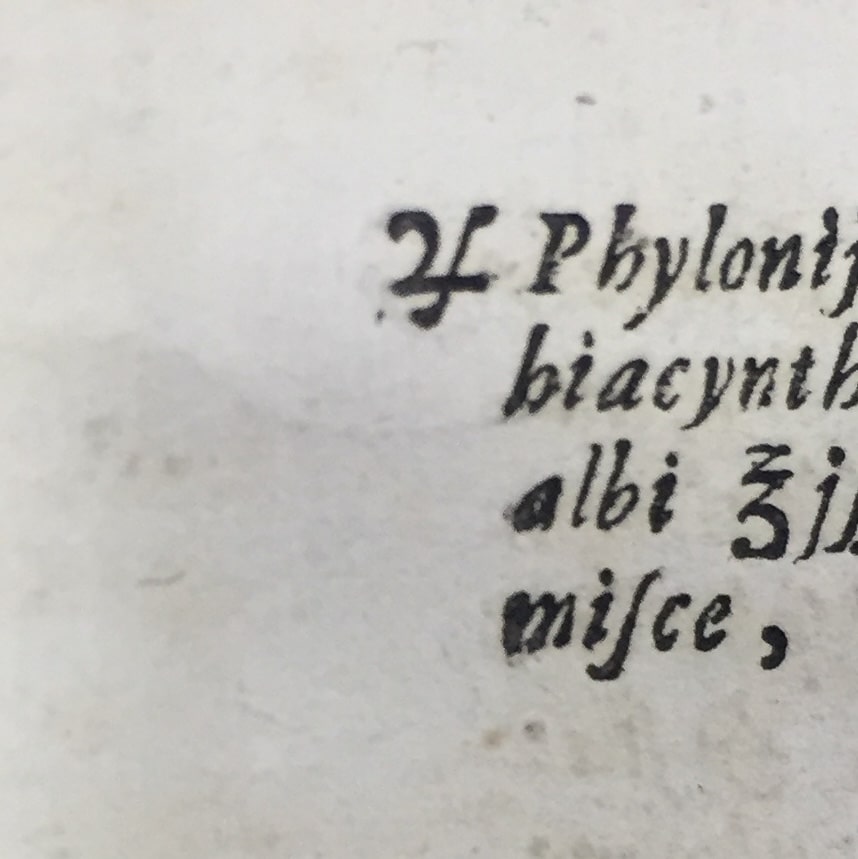 ♃ Phyloniſ
hiacynth
albi ℥jſ
miſce,